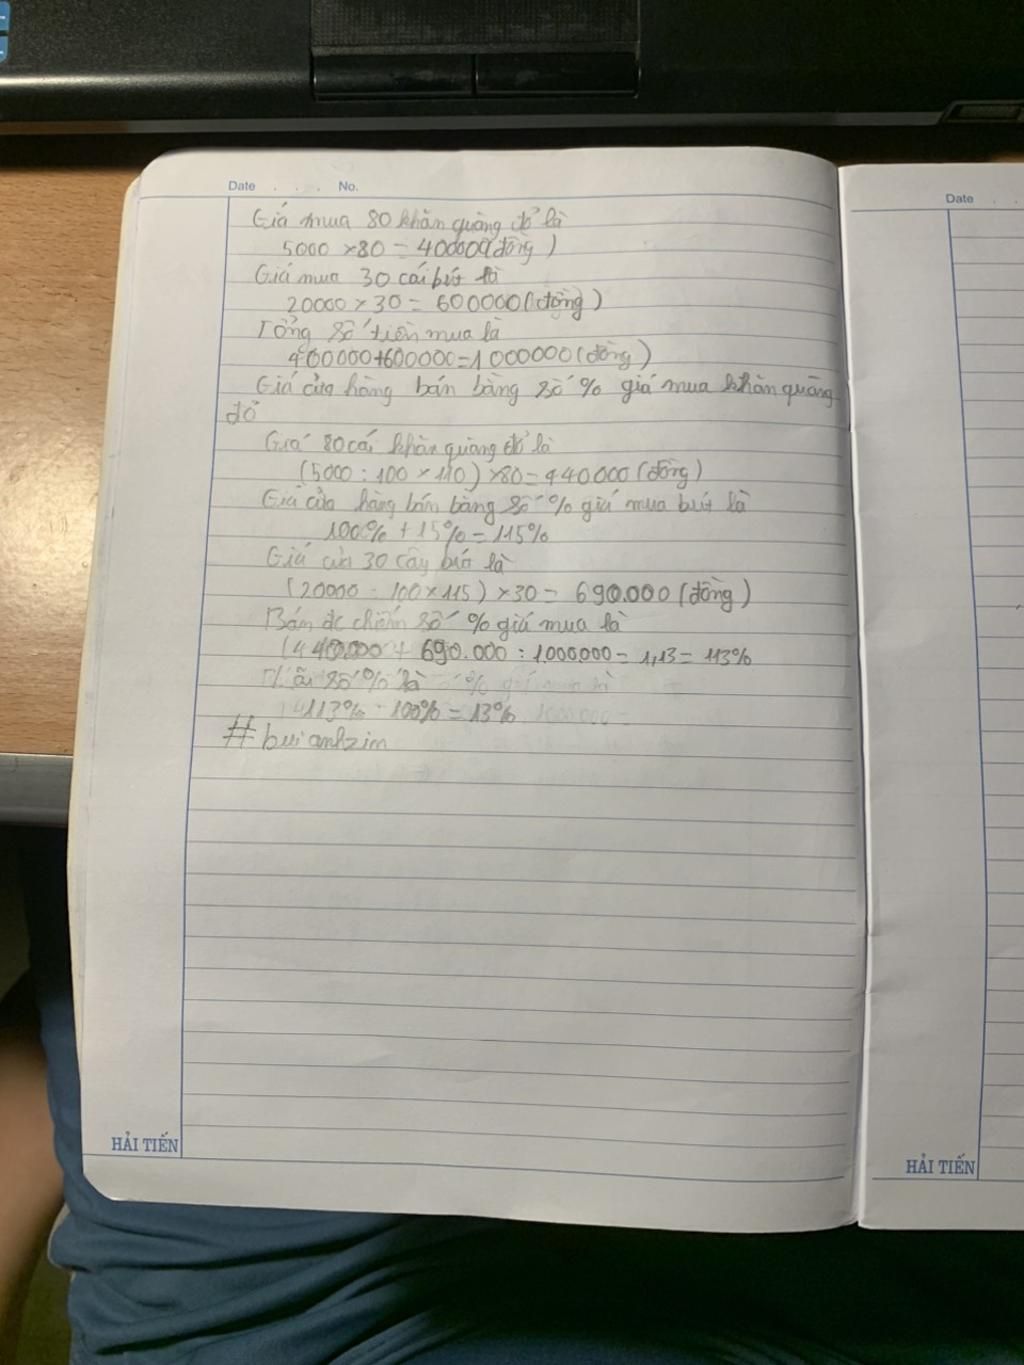 Date . . . No.
Date . .
Giá mua 80 khăn quàng đỏ là
5000 × 80 = 400000 (đồng)
Giá mua 30 cái bút là
20000 × 30 = 600000 (đồng)
Tổng số tiền mua là
400000 + 600000 = 1000000 (đồng)
Giá cửa hàng bán bằng số % giá mua khăn quàng
đỏ
Giá 80 cái khăn quàng đỏ là
(5000 : 100 × 110) × 80 = 440000 (đồng)
Giá cửa hàng bán bằng số % giá mua bút là
100% + 15% = 115%
Giá của 30 cây bút là
(20000 : 100 × 115) × 30 = 690.000 (đồng)
Bán đc chiếm số % giá mua là
(440.000 + 690.000 : 1.000.000 = 1,13 = 113%
Lãi số % là
113% - 100% = 13%
# bui anhzim
HẢI TIẾN
HẢI TIẾN